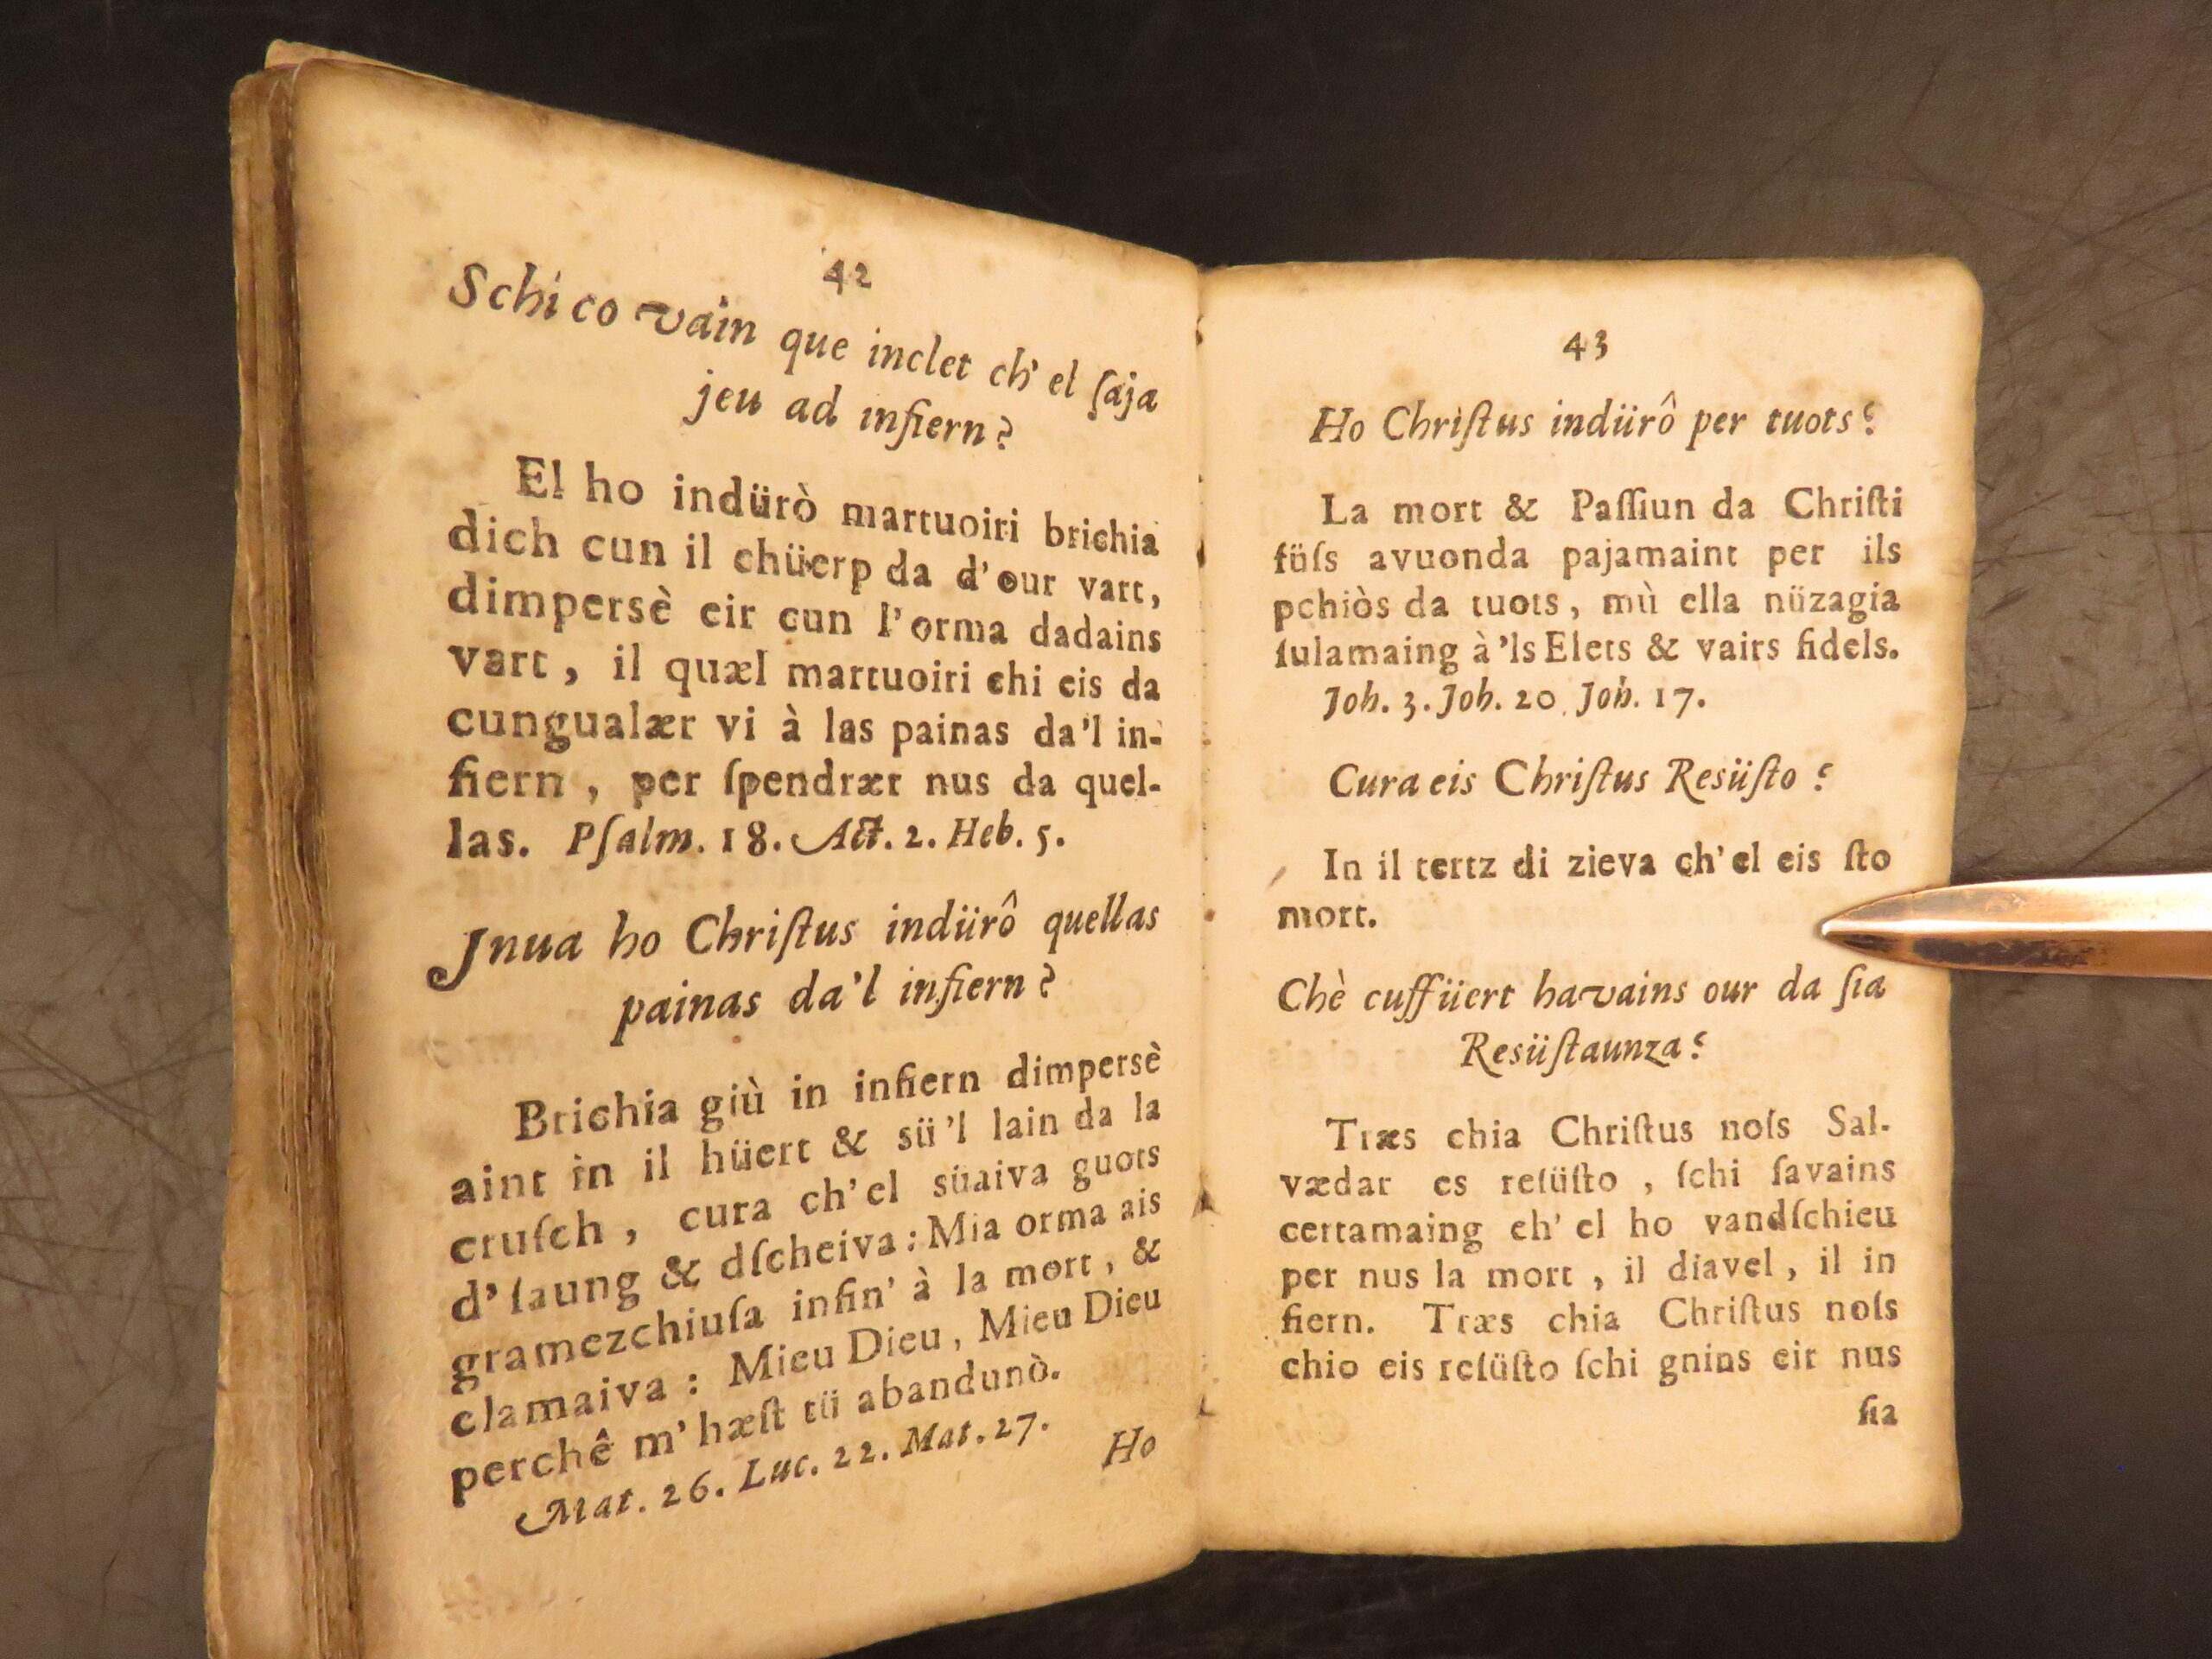 42
Schi co vain que inclet ch' el ſaja
jeu ad infiern?
El ho indürò martuoiri brichia
dich cun il chüerp da d'our vart,
dimpersè eir cun l'orma dadains
vart, il quæl martuoiri chi eis da
cungualær vi à las painas da'l in-
fiern, per ſpendrær nus da quel-
las. Pſalm. 18. Act. 2. Heb. 5.
Jnua ho Chriſtus indürô quellas
painas da'l infiern?
Brichia giù in infiern dimpersè
aint in il hüert & sü'l lain da la
cruſch, cura ch'el süaiva guots
d'ſaung & dſcheiva: Mia orma ais
gramezchiuſa infin' à la mort, &
clamaiva: Mieu Dieu, Mieu Dieu
perchê m'hæſt tü abandunò.
Mat. 26. Luc. 22. Mat. 27.
Ho
43
Ho Chriſtus indürô per tuots?
La mort & Paſſiun da Chriſti
füſs avuonda pajamaint per ils
pchiòs da tuots, mù ella nüzagia
ſulamaing à'ls Elets & vairs fidels.
Joh. 3. Joh. 20. Joh. 17.
Cura eis Chriſtus Resüſto?
In il tertz di zieva ch'el eis ſto
mort.
Chè cuffüert havains our da ſia
Resüſtaunza?
Træs chia Chriſtus noſs Sal-
vædar es reſüſto, ſchi ſavains
certamaing ch' el ho vandſchieu
per nus la mort, il diavel, il in
fiern. Træs chia Chriſtus noſs
chio eis reſüſto ſchi gnins eir nus
ſia